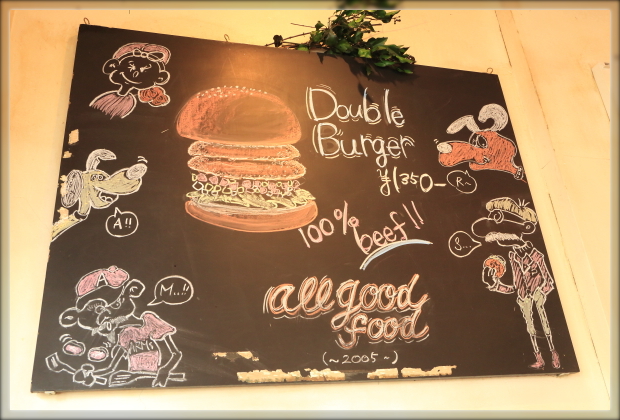 Double
Burger
¥1350-
100% beef!!
all good
food
(~2005~)
A!!
M..!!
R~
S...
A